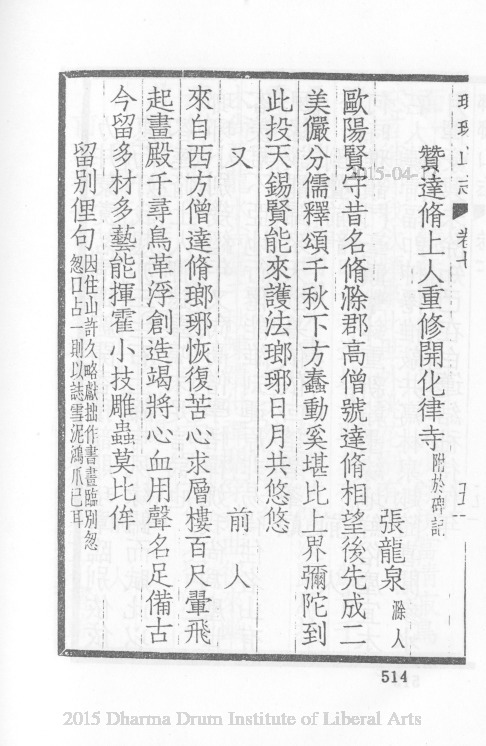 琅琊山志 卷七
贊達脩上人重修開化律寺附於碑記
張龍泉滁人
歐陽賢守昔名脩滁郡高僧號達脩相望後先成二
美儼分儒釋頌千秋下方蠢動奚堪比上界彌陀到
此投天錫賢能來護法瑯琊日月共悠悠
又 前人
來自西方僧達脩瑯琊恢復苦心求層樓百尺翬飛
起畫殿千尋鳥革浮創造竭將心血用聲名足備古
今留多材多藝能揮霍小技雕蟲莫比侔
留别俚句因住山許久略獻拙作書畫臨別忽
忽口占一則以誌雪泥鴻爪已耳
514
2015-04-
2015 Dharma Drum Institute of Liberal Arts